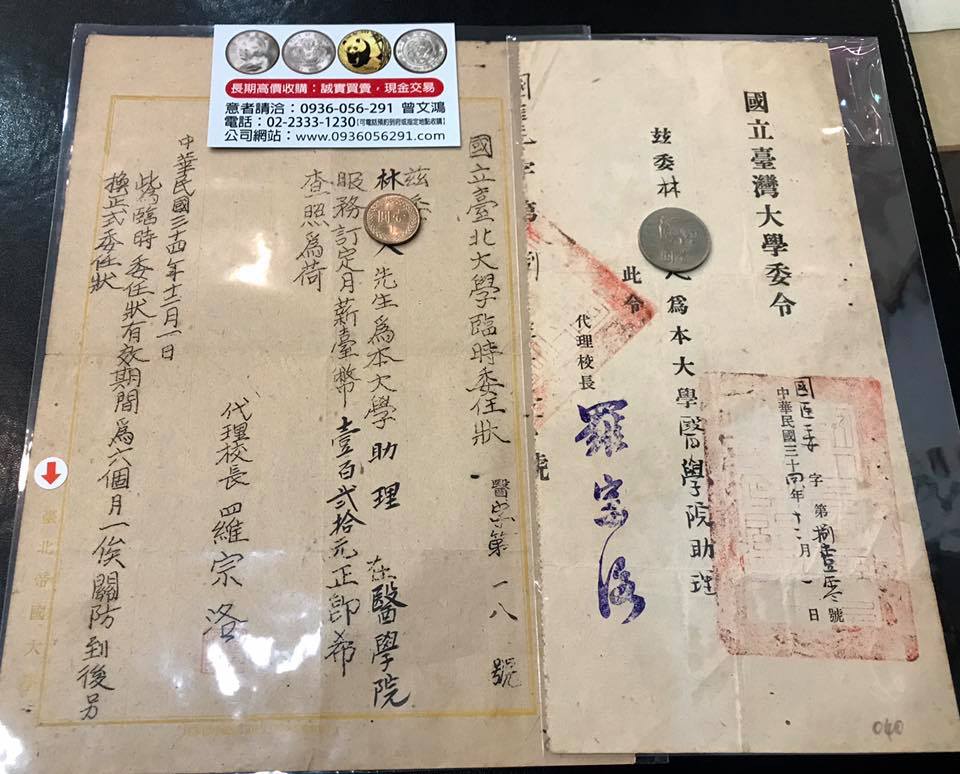 長期高價收購：誠實買賣，現金交易
意者請洽：0936-056-291 曾文鴻
電話：02-2333-1230【可電話預約到府或指定地點收購】
公司網站：www.0936056291.com
國立臺灣大學委令
茲委林
為本大學醫學院助理
此令
代理校長
羅宗洛
國臣委字第捌壹零號
中華民國三十四年十二月一日
國立臺北大學臨時委任狀
醫眾第一八號
茲委
林 先生為本大學助理在醫學院
服務訂定月薪臺幣壹百弍拾元正卽希
查照為荷
代理校長羅宗洛
中華民國三十四年十二月一日
此為臨時委任狀有效期間為六個月一俟關防到後另
換正式委任狀
臺北帝國大學
040